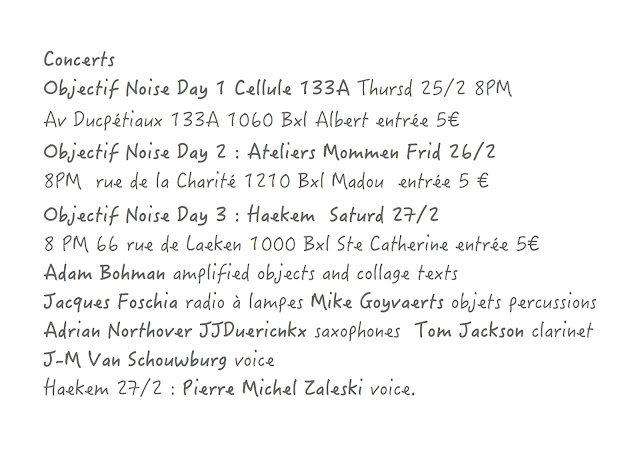 Concerts
Objectif Noise Day 1 Cellule 133A Thursd 25/2 8PM
Av Ducpétiaux 133A 1060 Bxl Albert entrée 5€
Objectif Noise Day 2 : Ateliers Mommen Frid 26/2
8PM rue de la Charité 1210 Bxl Madou entrée 5 €
Objectif Noise Day 3 : Haekem Saturd 27/2
8 PM 66 rue de Laeken 1000 Bxl Ste Catherine entrée 5€
Adam Bohman amplified objects and collage texts
Jacques Foschia radio à lampes Mike Goyvaerts objets percussions
Adrian Northover JJDuericnkx saxophones Tom Jackson clarinet
J-M Van Schouwburg voice
Haekem 27/2 : Pierre Michel Zaleski voice.